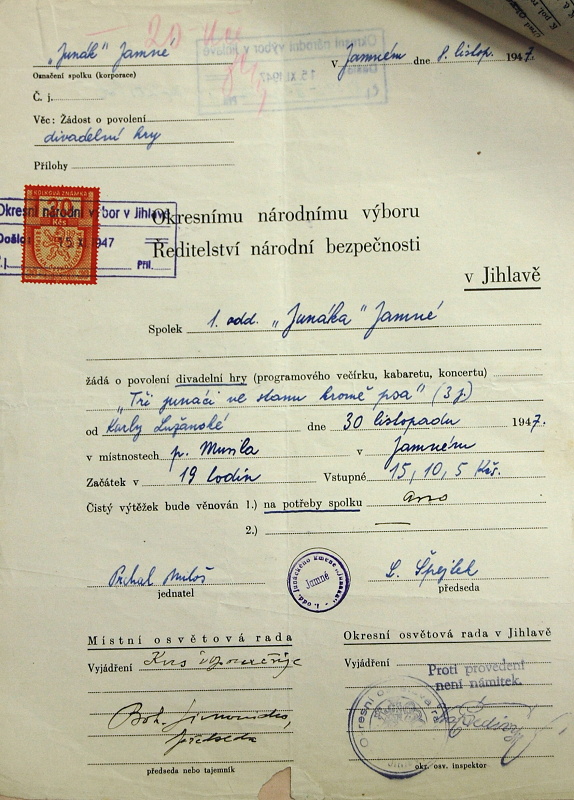 „Junák" Jamné
v Jamném dne 8. listop. 1947.
Označení spolku (korporace)
Č. j.
Věc: Žádost o povolení
divadelní hry
Přílohy
KOLKOVÁ ZNÁMKA
30
Kčs
Okresní národní výbor v Jihlavě
Došlo: 15 XI. 1947
Č. j. Příl.
Okresní národní výbor v Jihlavě
Došlo 15 XI. 1947
Okresnímu národnímu výboru
Ředitelství národní bezpečnosti
v Jihlavě
Spolek 1. odd. „Junáka" Jamné
žádá o povolení divadelní hry (programového večírku, kabaretu, koncertu)
„Tři junáci ve stanu kromě psa" (3 j.)
od Karly Lužanské dne 30 listopadu 1947.
v místnostech p. Musila v Jamném
Začátek v 19 hodin Vstupné 15, 10, 5 Kčs.
Čistý výtěžek bude věnován 1.) na potřeby spolku ano
2.) —
Prchal Miloš
L. Špejlek
jednatel
předseda
1. odd. junáckého kmene „Junáka"
Jamné
Místní osvětová rada
Okresní osvětová rada v Jihlavě
Vyjádření Kus doporučuje
Vyjádření
Proti provedení
není námitek.
Boh.
předseda
předseda nebo tajemník
okr. osv. inspektor